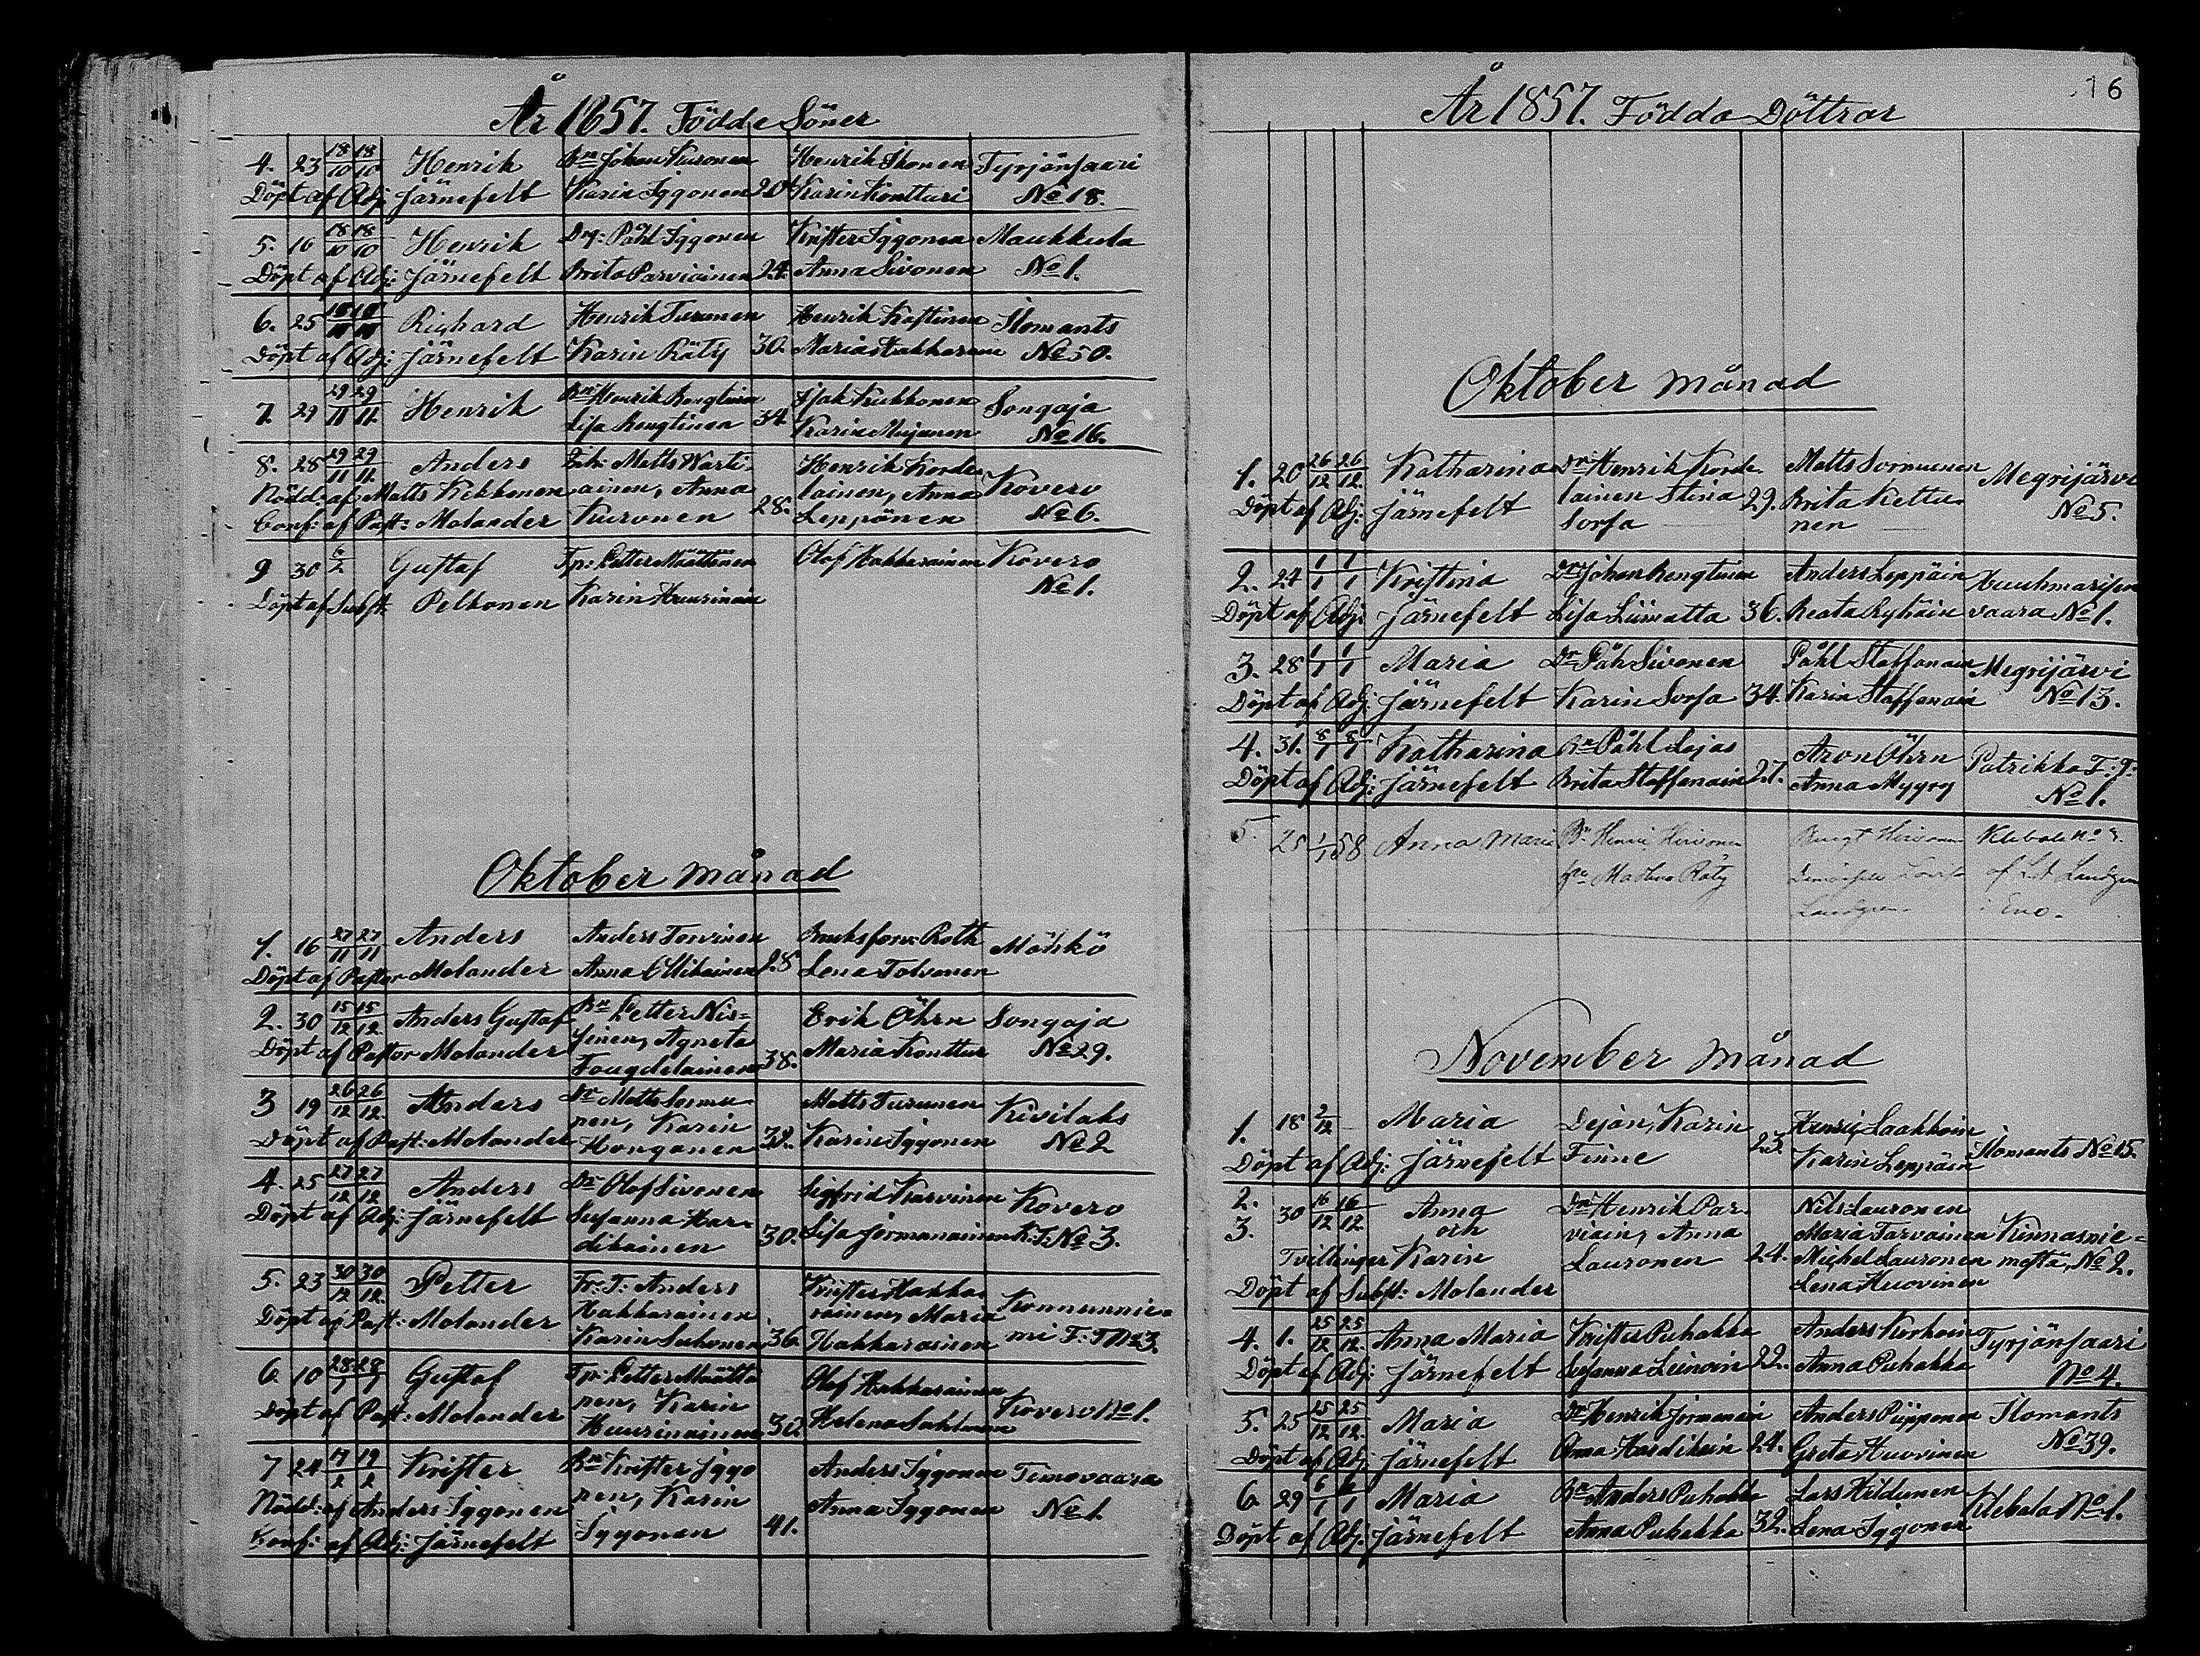 År 1857. Födde Söner
4. 23 18/10 18/10 Henrik Bn Johan Kuronen Henrik Ikonen Tyrjänsaari
Döpt af Adj. Järnefelt Karin Iggonen 20 Karin Kontturi No 18.
5. 16 18/10 18/10 Henrik Drg: Påhl Iggonen Krister Iggonen Maukkula
Döpt af Adj: Järnefelt Brita Parviainen 24. Anna Sivonen No 1.
6. 25 18/10 18/10 Richard Henrik Turunen Henrik Kostinen Ilomants
Döpt af Adj: Järnefelt Karin Räty 30. Maria Hakkarain No 50.
7. 29 29/11 29/11. Henrik Bn Henrik Rengtinen Isak Kukkonen Songaja
Lisa Rengtinen 34. Karin Mujunen No 16.
8. 28 29/11 29/11. Anders Inh: Matts Warti- Henrik Korde
Nödd: af Matts Kekkonen ainen, Anna lainen, Anna Kovero
Conf: af Past: Molander Kuronen 28. Leppönen No 6.
9 30 6/2 Gustaf Tp: Petter Määttönen Olof Hakkarainen Kovero
Döpt af Subst: Pelkonen Karin Huurinain No 1.
Oktober månad
1. 16 27/11 27/11 Anders Anders Torvinen Bruksforv: Roth Möhkö
Döpt af Pastor Molander Anna Ollikainen 28 Lena Tolvanen
2. 30 15/12 15/12. Anders Gustaf Bn Petter Nis= Erik Öhrn Songaja
Döpt af Pastor Molander sinen, Agneta Maria Konttur No 29.
Fougdelainen 38.
3 19 26/12 26/12. Anders Dr Matts Sormu- Matts Turunen Kivilaks
Döpt af Past: Molander nen, Karin Karin Iggonen No 2
Honganen 38.
4. 25 27/12 27/12 Anders Dr Olof Sivonen Sigfrid Karvinen Kovero
Döpt af Adj: Järnefelt Susanna Har- Lisa Jormanainen K:T. No 3.
dikainen 30.
5. 23 30/12 30/12. Petter Fr: T: Anders Krister Hakka Konnunnie-
Döpt af Past: Molander Hakkarainen rainen, Maria mi F: T No 3.
Karin Suhonen 36. Hakkarainen
6. 10 28/1 28/1 Gustaf Tp: Petter Määttö Olof Hakkarainen
Döpt af Past: Molander nen, Karin Helena Sahlman Kovero No 1.
Huurinainen 30
7 24 17/2 19/2 Krister Bn Krister Iggo Anders Iggonen Timovaara
Nödd: af Anders Iggonen nen, Karin Anna Iggonen No 1.
Konf: af Adj: Järnefelt Iggonen 41.
16
År 1857. Födda Döttrar
Oktober månad
1. 20 26/12 26/12. Katharina Dr Henrik Korde- Matts Sormunen Megrijärvi
Döpt af Adj: Järnefelt lainen Stina 29. Brita Kettu- No 5.
Sorsa nen
2. 24 1/1 1/1 Kristina Dr Johan Rengtinen Anders Leppäin Huuhmarisen
Döpt af Adj: Järnefelt Lisa Liimatta 36. Beata Ryhäin vaara No 1.
3. 28 1/1 1/1 Maria Dr Påh Sivonen Påhl Staffanain Megrijärvi
Döpt af Adj: Järnefelt Karin Sorsa 34. Karin Staffanain No 13.
4. 31. 8/1 8/1 Katharina Bn Påhl Lajas Aron Öhrn Patrikka F: T:
Döpt af Adj: Järnefelt Brita Staffanain 27. Anna Myyry No 1.
5. 25 1/1 58 Anna Maria Bn Henric Hirvonen Bengt Hirvonen Klebala No
hu Madlena Räty Lovisa af Lundgren
Lundgren i Eno.
November månad
1. 18 2/12 Maria Dejan, Karin Henric Laakkoin
Döpt af Adj: Järnefelt Finne 23. Karin Leppäin Ilomants No 15.
2. 30 16/12 16/12 Anna Dr Henrik Par- Nils Lauronen
3. och viain, Anna Maria Tarvainen Kinnasnie=
Tvillingar Karin Lauronen 24. Michel Lauronen mostä, No 2.
Döpt af Subst: Molander Lena Huovinen
4. 1. 25/12 25/12. Anna Maria Krister Puhakka Anders Korhoin Tyrjänsaari
Döpt af Adj: Järnefelt Susanna Leinoin 22. Anna Puhakka No 4.
5. 25 25/12 25/12. Maria Dr Henrik Jormanain Anders Piipponen Ilomants
Döpt af Adj: Järnefelt Anna Hardikain 24. Greta Huovinen No 39.
6. 29 6/1 6/1 Maria Bn Anders Puhakka Lars Hildunen Klebala No 1.
Döpt af Adj: Järnefelt Anna Puhakka 32. Lena Iggonen